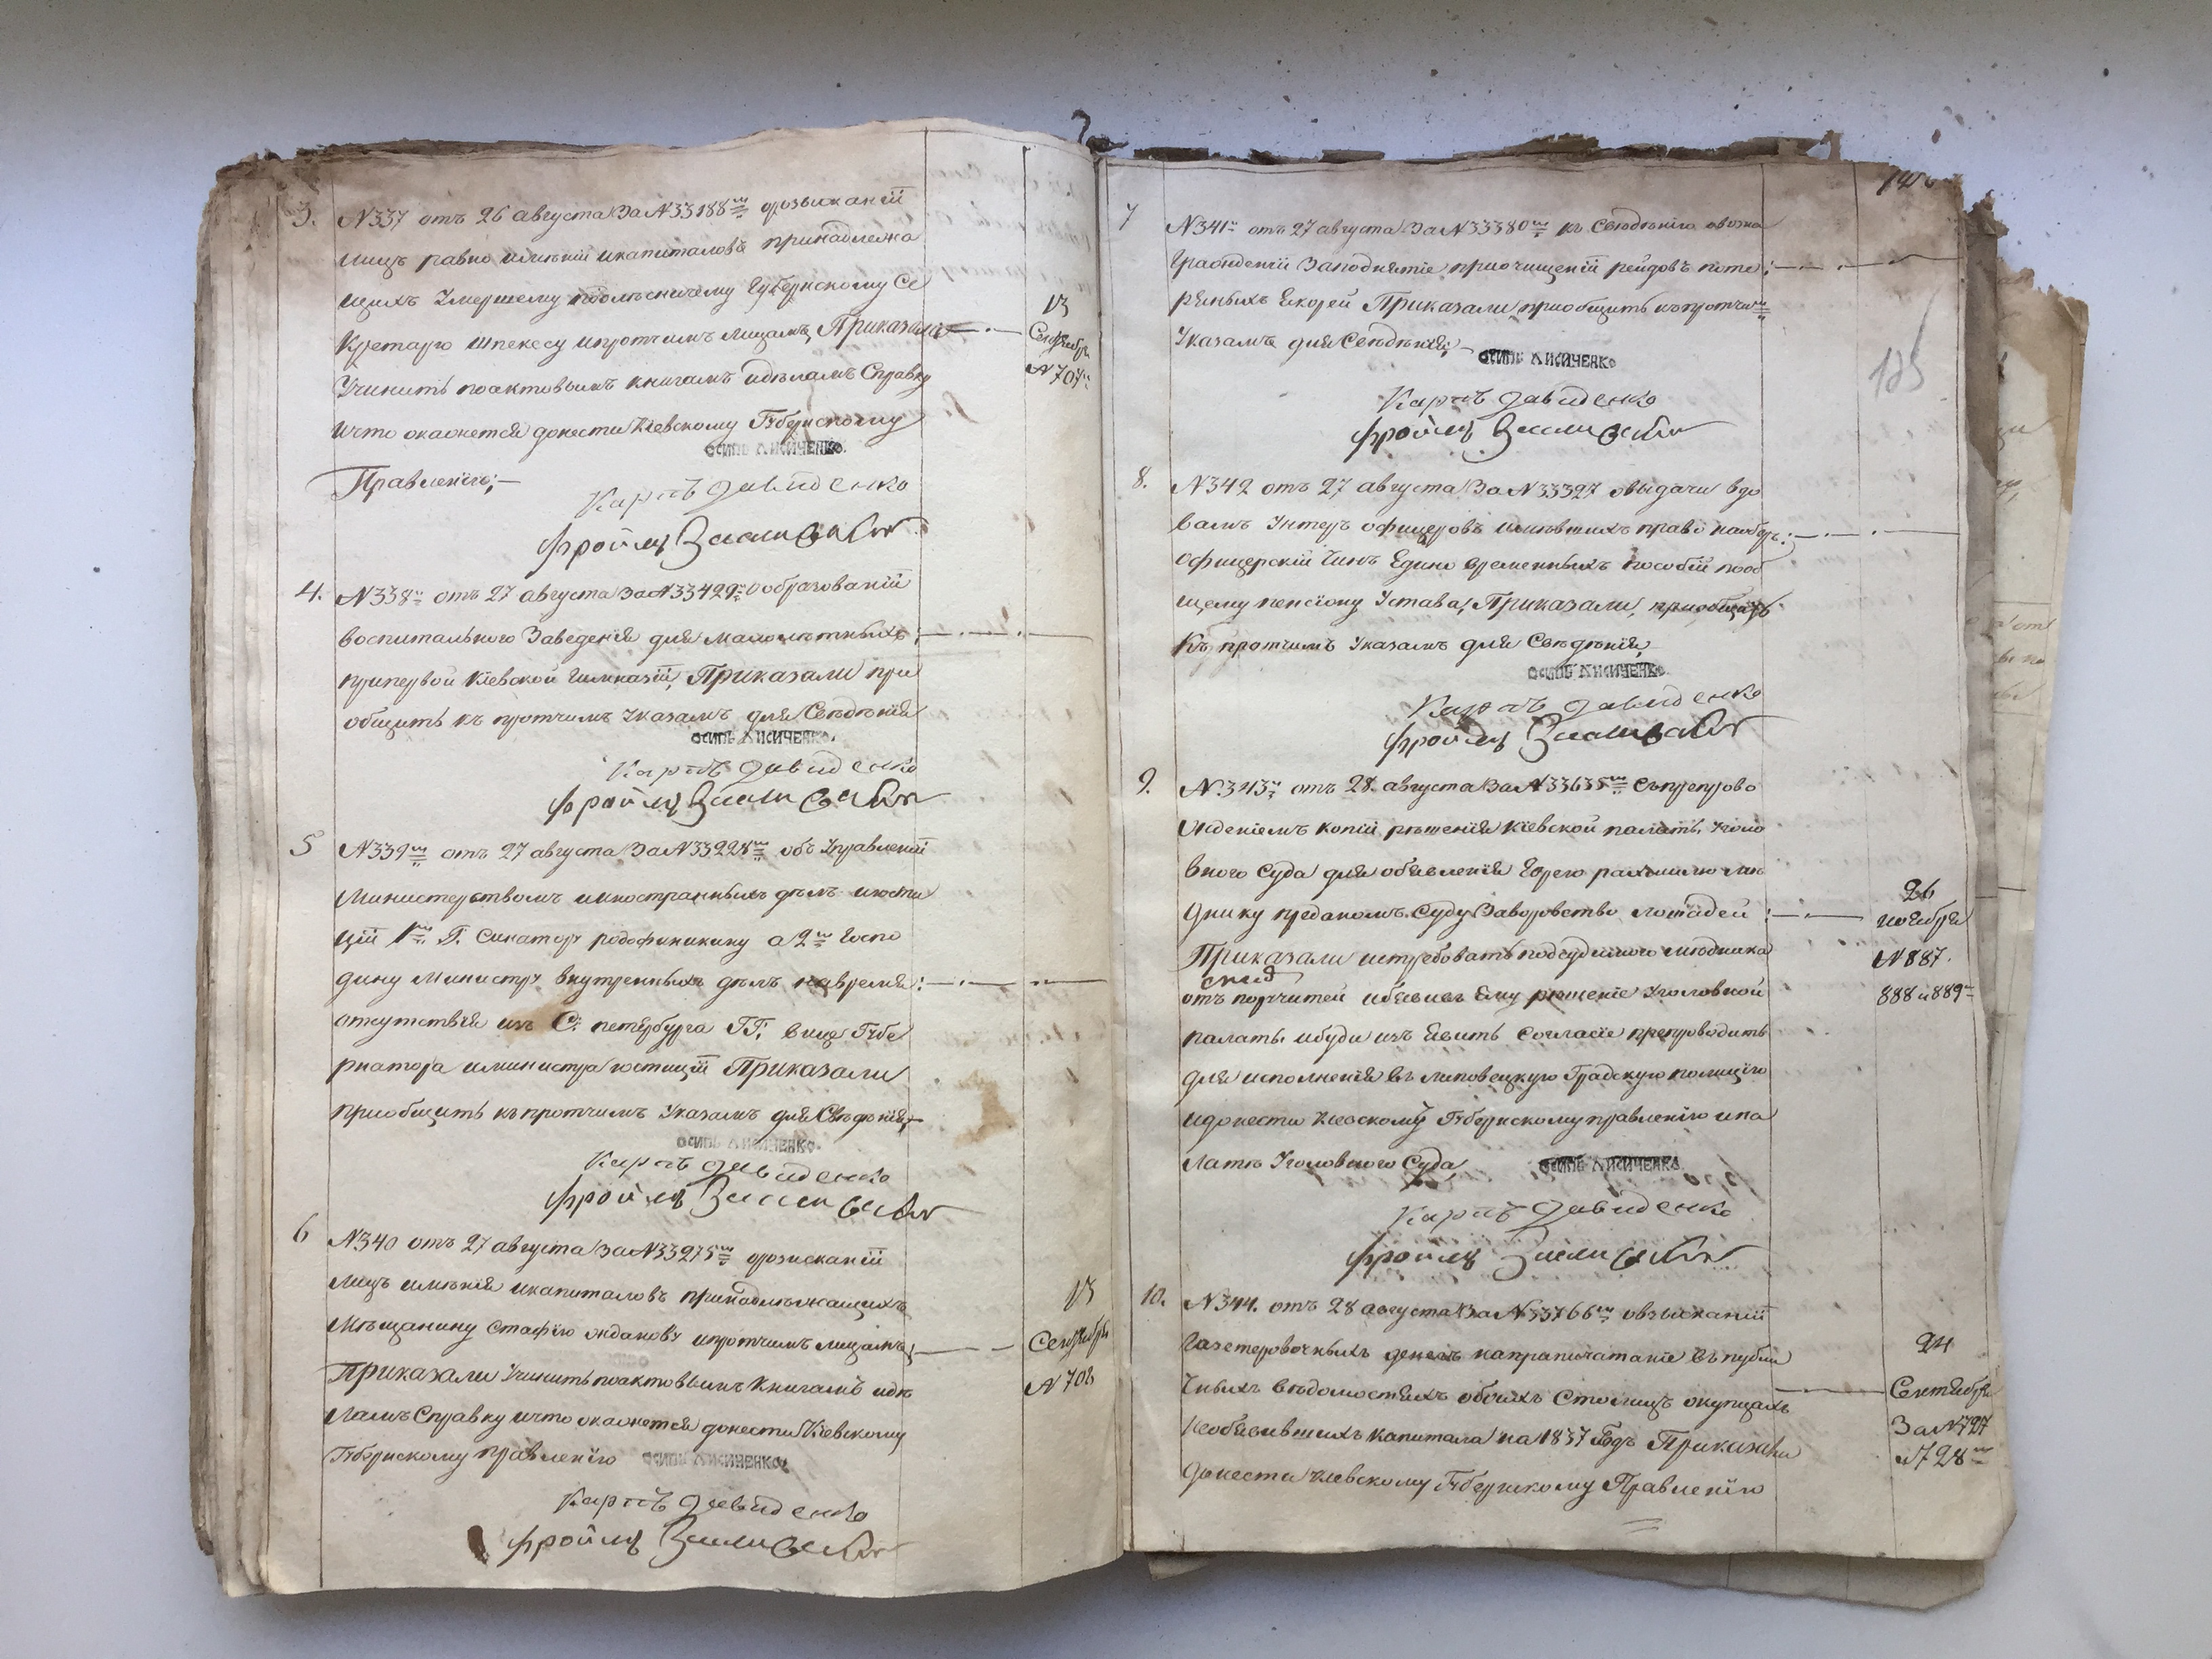 3. N337 отъ 26 августа За N33188 орозысканіи
лицъ равно имѣній икапиталовъ принадлежа
щихъ Умершему Губернскому Се
кретарю Шпекесу ипротчимъ лицамъ, Приказали
Учинить поактовымъ книгамъ идѣламъ Справку
ичто окажется донести Кіевскому Губернскому
Правленію;
13
Сентября
N707
ОСИПЪ ЛИСИЧЕНКО.
Карпъ Давиденко
4. N338 отъ 27 августа За N33429 Ообразованіи
воспитального Заведенія для малолѣтныхъ
припервой Кіевской Гимназіи, Приказали при
общить къ протчимъ Указамъ для Свѣдѣнія
ОСИПЪ ЛИСИЧЕНКО.
Карпъ Давиденко
5 N339 отъ 27 августа За N33228 объ Управленіи
Министерствомъ иностранныхъ дѣлъ июсти
ціи 1 Г. Сенатору родофиникину а 2 Госпо
дину Министру внутренныхъ дѣлъ навремя
отсутствія изъ С: петербурга ГГ: вице Губе
рнатора иминистра юстиціи Приказали
приобщить къпротчимъ Указамъ для Свѣдѣнія;
ОСИПЪ ЛИСИЧЕНКО.
Карпъ Давиденко
6 N340 отъ 27 августа За N33275 орозисканіи
лицъ имѣнія икапиталовъ принадлѣжащихъ
Мѣщанину Стафію жданову ипротчимъ лицамъ,
Приказали Учинить поактовымъ Книгамъ идѣ
ламъ Справку ичто окажется донести Кіевскому
Губернскому правленію
13
Сентября
N 708
ОСИПЪ ЛИСИЧЕНКО.
Карпъ Давиденко
185
7 N341 отъ 27 августа За N33380 къ Свѣдѣнію овозна
гражденіи Заподнятіе приочищеніи рейдовъ поте
ряныхъ Якорей Приказали приобщить къпротчи
Указамъ для Свѣдѣнія;
ОСИПЪ ЛИСИЧЕНКО
Карпъ Давиденко
8. N342 отъ 27 августа За N33327 овыдачи вдо
вамъ Унтеръ офицеровъ имѣвшихъ право наоберъ
офицерскій Чинъ Едино временныхъ пособій пооб
щему пенсіону Устава, Приказали, приобщить
Къ протчимъ Указамъ для Свѣдѣнія,
ОСИПЪ ЛИСИЧЕНКО.
Карпъ Давиденко
9. N343 отъ 28 августа За N33635 Съпрепрово
жденіемъ копіи рѣшенія Кіевской палаты Уголо
вного Суда для объявленія Еврею рахмилю лю
днику преданомъ Суду Заворовство лошадей
Приказали истребовать подсудимого людника
отъ поручителей объявить Ему решеніе Уголовной
палаты ибуди изъ Явить Согласіе препроводить
для исполненія въ липовецкую Градскую полицію
идонести Кіевскому Губернскому правленію ипа
латѣ Уголовного Суда,
26
ноября
N887.
888 и 889
ОСИПЪ ЛИСИЧЕНКО.
Карпъ Давиденко
10. N344. отъ 28 августа За N33766 овзысканіи
Газетеровочныхъ денегъ напрапичатаніе въпубли
чныхъ вѣдомостяхъ обоихъ Столицъ окупцахъ
необъявившихъ капитала на 1837 Годъ Приказали
донести Кіевскому Губернскому Правленію
24
Сентября
За N727
и 728